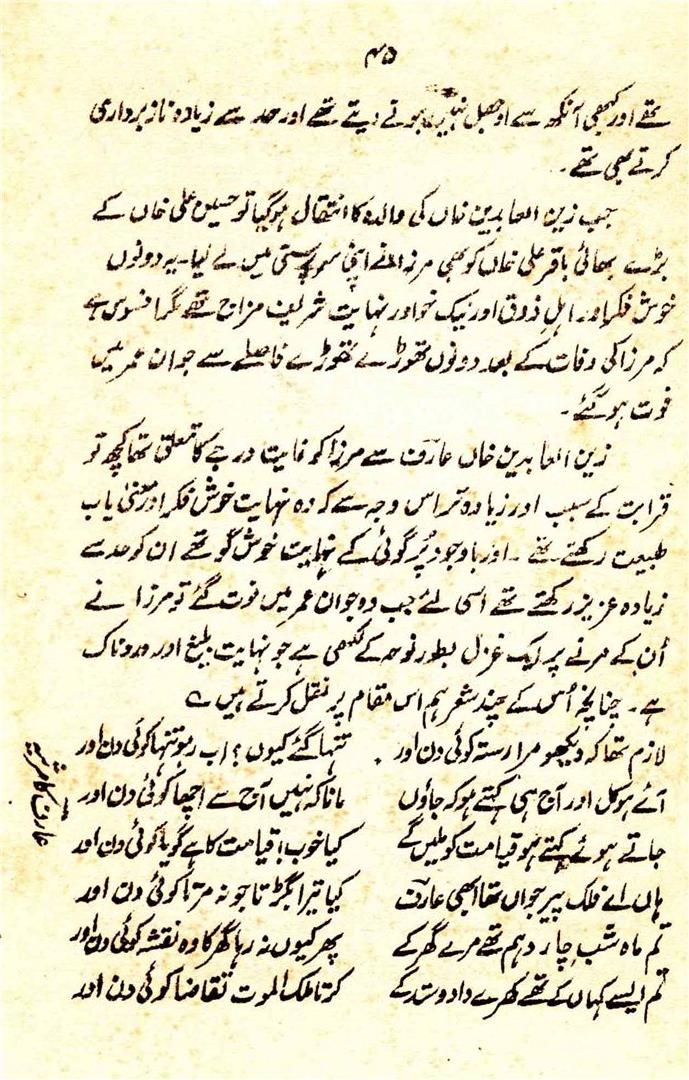 ۴۵
تھے اور کبھی آنکھ سے اوجھل نہیں ہونے دیتے تھے اور حد سے زیادہ ناز برداری
کرتے بھی تھے۔
جب زین العابدین خاں کی والدہ کا انتقال ہو گیا تو حسین علی خاں کے
بڑے بھائی باقر علی خاں کو بھی مرزا نے اپنی سرپرستی میں لے لیا۔ یہ دونوں
خوش فکر اور اہل ذوق اور نیک خو اور نہایت شریف مزاج تھے مگر افسوس ہے
کہ مرزا کی وفات کے بعد دونوں تھوڑے تھوڑے فاصلے سے جوان عمر میں
فوت ہو گئے۔
زین العابدین خاں عارفؔ سے مرزا کو غایت درجے کا تعلق تھا کچھ تو
قرابت کے سبب اور زیادہ تر اس وجہ سے کہ وہ نہایت خوش فکر اور معنی یاب
طبیعت رکھتے تھے۔ اور باوجود پُر گوئی کے نہایت خوش گو تھے ان کو حد سے
زیادہ عزیز رکھتے تھے اسی لئے جب وہ جوان عمر میں فوت گئے تو مرزا نے
اُن کے مرنے پر ایک غزل بطور نوحہ کے لکھی ہے جو نہایت بلیغ اور دردناک
ہے۔ چنانچہ اُس کے چند شعر ہم اس مقام پر نقل کرتے ہیں ؎
لازم تھا کہ دیکھو مرا رستہ کوئی دن اور تنہا گئے کیوں؟ اب رہو تنہا کوئی دن اور
آئے ہو کل اور آج ہی کہتے ہو کہ جاؤں مانا کہ نہیں آج سے اچھا کوئی دن اور
جاتے ہوئے کہتے ہو قیامت کو ملیں گے کیا خوب! قیامت کا ہے گویا کوئی دن اور
ہاں اے فلک پیر جواں تھا ابھی عارفؔ کیا تیرا بگڑتا جو نہ مرتا کوئی دن اور
تم ماہ شبِ چار دہم تھے مرے گھر کے پھر کیوں نہ رہا گھر کا وہ نقشہ کوئی دن اور
تم ایسے کہاں کے تھے کھرے داد و ستد کے کرتا ملک الموت تقاضا کوئی دن اور
عارف کا مرثیہ